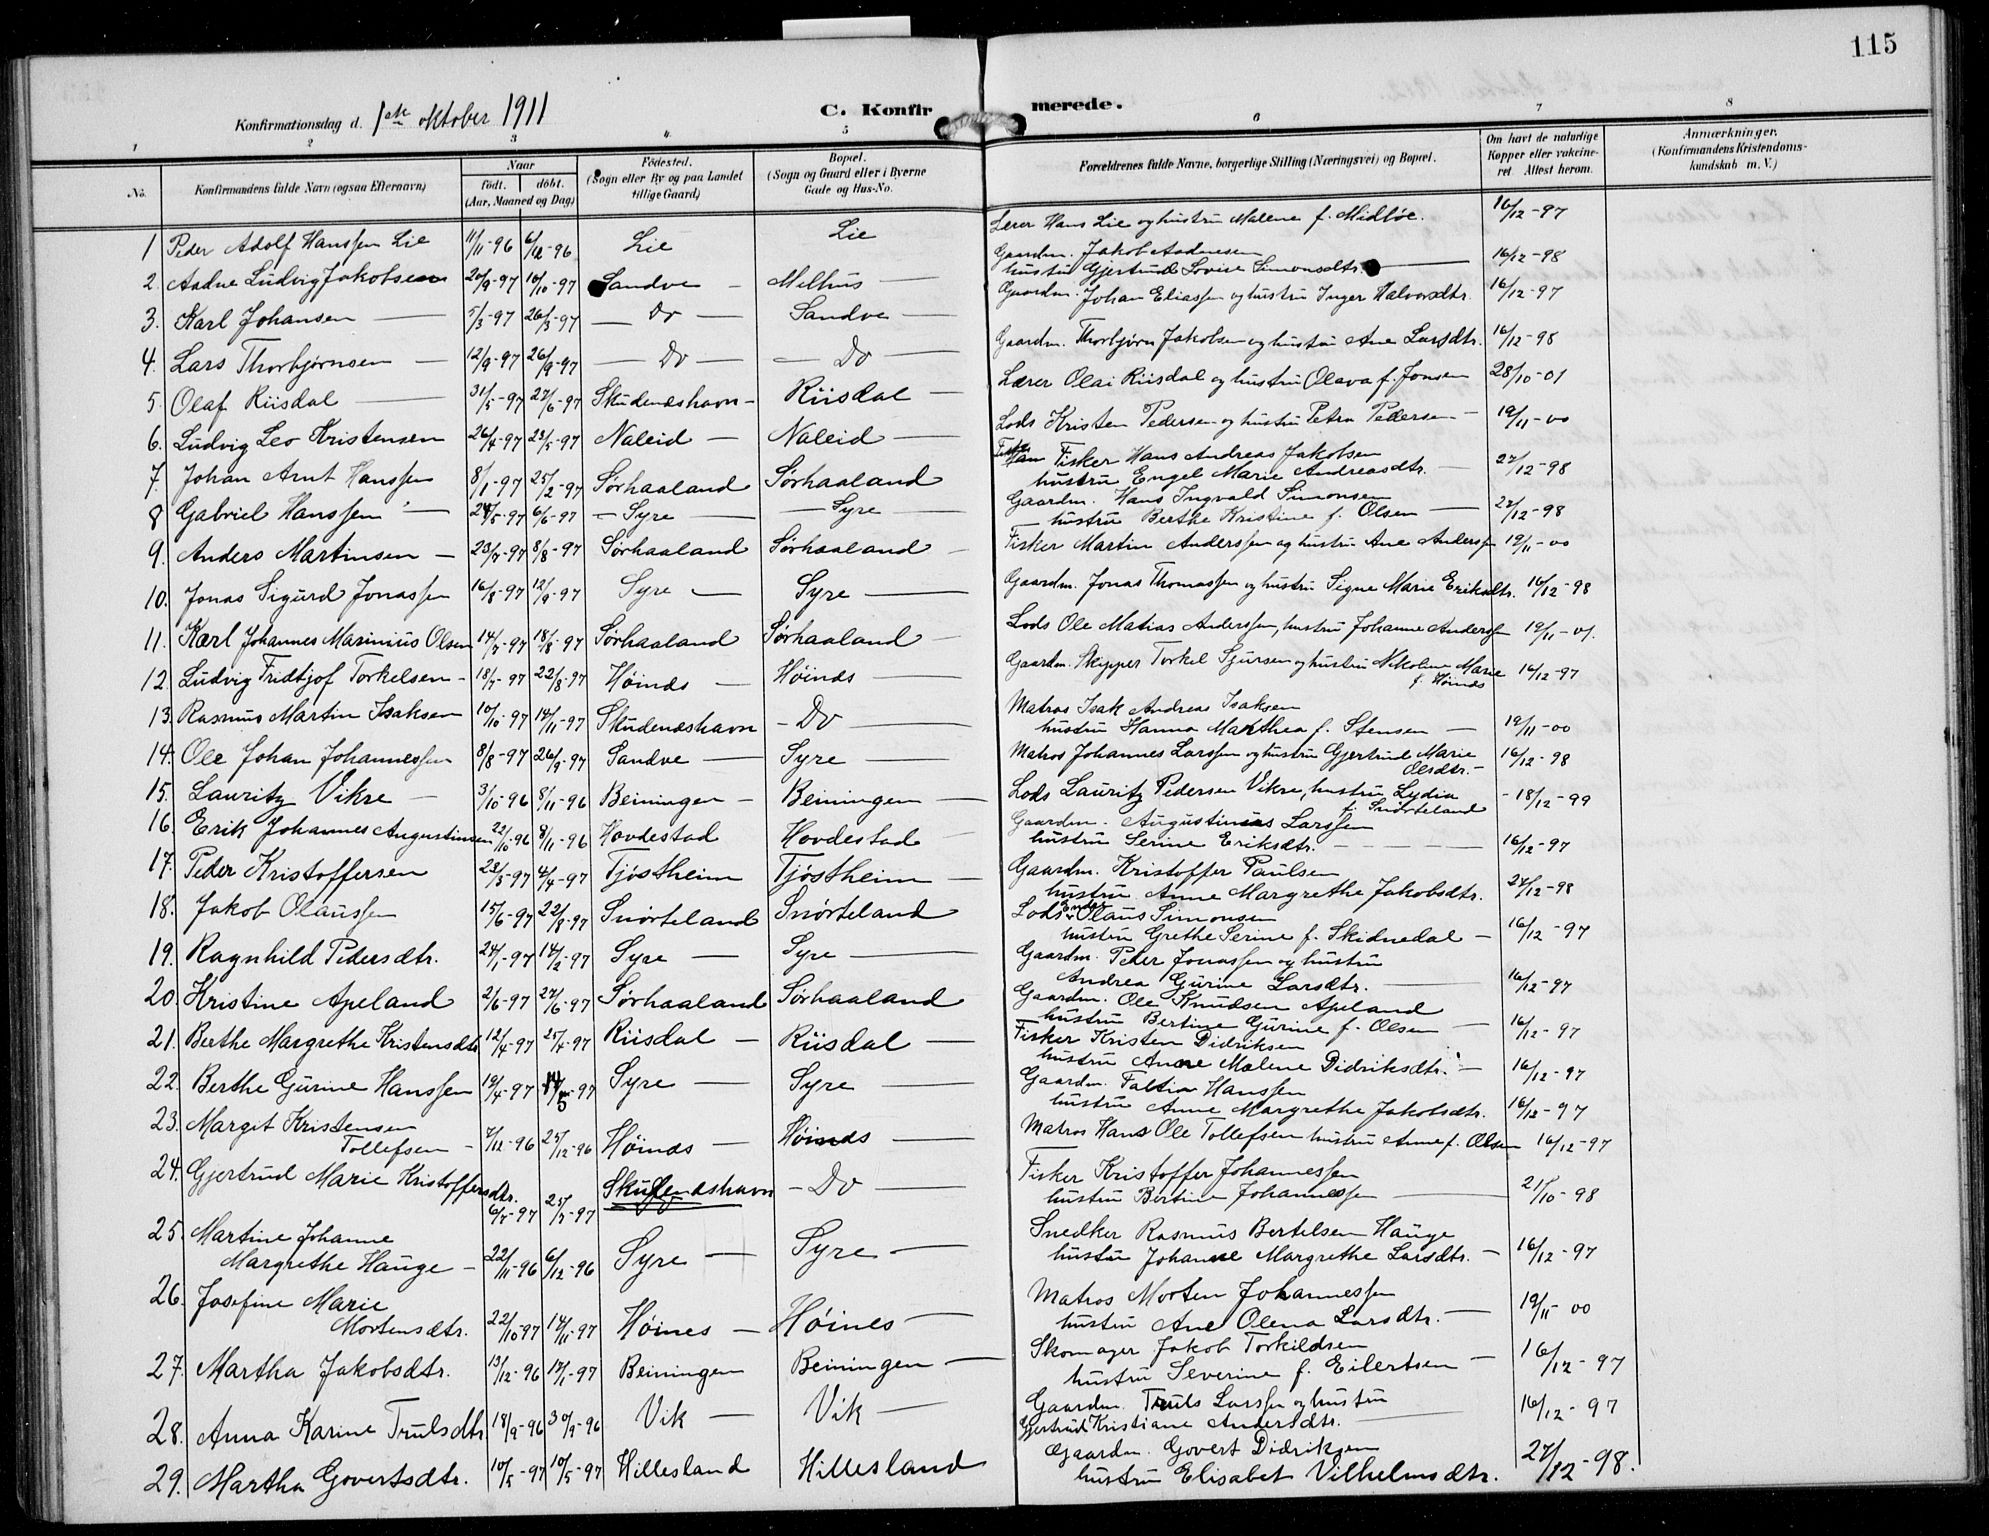 115
Konfirmationsdag d. 1ste oktober 1911 C. Konfirmerede.
1 2 3 4 5 6 7 8
No. Konfirmandens fulde Navn (ogsaa Efternavn) Naar født. døbt. (Aar, Maaned og Dag) Fødested. (Sogn eller By og paa Landet tillige Gaard) Bopæl. (Sogn og Gaard eller i Byerne Gade og Hus-No. Forældrenes fulde Navne, borgerlige Stilling (Næringsvei) og Bopæl. Om havt de naturlige Kopper eller vakcineret. Attest herom. Anmærkninger. (Konfirmandens Kristendomskundskab m. V.)
1 Peder Adolf Hanssen Lie 11/11-96 6/12-96 Lie Lie Lerer Hans Lie og hustru Malene f. Midtøe. 16/12-97
2. Aadne Ludvig Jakobsen 20/9-97 10/10-97 Sandve - Melhus - Gaardm. Jakob Aadnesen
hustru Gjertrud Lovise Simonsdtr. 16/12-98
3. Karl Johansen 5/3-97 26/3-97 - Do - Sandve - Gaardm. Johan Eliassen og hustru Inger Halvorsdtr. 16/12-97
4. Lars Thorbjørnsen - 12/9-97 26/9-97 - Do - - Do - Gaardm. Thorbjørn Jakobsen og hustru Ane Larsdtr. 16/12-98
5. Olaf Riisdal 31/5-97 27/6-97 Skudenæshavn - Riisdal - Lærer Olai Riisdal og hustru Olava f. Jonsen 28/10-01
6. Ludvig Leo Kristensen 26/4-97 23/5-97 Naleid - Naleid - Lods Kristen Pedersen og hustru Petra Pedersen - 19/11-00
7. Johan Arnt Hanssen 8/1-97 25/2-97 Sørhaaland Sørhaaland Fisker Hans Andreas Jakobsen
hustru Engel Marie Andreasdtr. - 27/12-98
8 Gabriel Hanssen - 24/5-97 6/6-97 - Syre - Syre Gaardm. Hans Ingvald Simonsen
- hustru Berthe Kristine f. Olsen - 27/12-98
9. Anders Martinsen - 23/7-97 8/8-97 Sørhaaland Sørhaaland Fisker Martin Anderssen og hustru Ane Anderssen 19/11-00
10. Jonas Sigurd Jonassen 16/8-97 12/9-97 Syre - Syre - Gaardm. Jonas Thomassen og hustru Signe Marie Eriksdtr. 16/12-98
11. Karl Johannes Marinius Olsen 14/7-97 18/8-97 Sørhaaland Sørhaaland Lods Ole Matias Anderssen, hustru Johanne Anderssen 19/11-01.
12. Ludvig Fridtjof Torkelsen - 18/7-97 22/8-97 Høinds - Høinds - Gaardm. Skipper Torkel Sjursen og hustru Nikoline Marie
f. Høinds 16/12-97
13. Rasmus Martin Isaksen 10/10-97 14/11-97 Skudenæshavn - Do - Matros Isak Andreas Isaksen
hustru Hanna Marthea f. Stensen - 19/11-00
14. Ole Johan Johannessen 8/8-97 26/9-97 Sandve - Syre - Matros Johannes Larssen og hustru Gjertrud Marie
Olsdtr. - 16/12-98
15. Lauritz Vikre - 3/10-96 8/11-96 Beiningen - Beiningen - Lods Lauritz Pedersen Vikre, hustru Lydia
f. Snørteland - 18/12-99
16. Erik Johannes Augustinsen 22/10-96 8/11-96 Hovdestad Hovdestad Gaardm. Augustinus Larssen
hustru Serine Eriksdtr. - 16/12-97
17. Peder Kristoffersen 23/3-97 4/4-97 Tjøstheim Tjøstheim - Gaardm. Kristoffer Paulsen
hustru Anne Margrethe Jakobsdtr. 27/12-98
18. Jakob Olaussen 15/6-97 22/8-97 Snørteland Snørteland Lods Peder Olaus Simonsen
hustru Grethe Serine f. Skidnedal - 16/12-97
19. Ragnhild Pedersdtr. 24/1-97 14/2-97 Syre - Syre - Gaardm. Peter Jonassen og hustru
Andrea Gurine Larsdtr. 16/12-97
20. Kristine Apeland 2/6-97 27/6-97 Sørhaaland Sørhaaland Gaardm. Ole Knudsen Apeland
hustru Bertine Gurine f. Olsen - 16/12-97
21. Berthe Margrethe Kristensdtr 12/4-97 25/4-97 Riisdal - Riisdal - Fisker Kristen Didriksen
hustru Anne Malene Didriksdtr. - 16/12-97
22. Berthe Gurine Hanssen 19/4-97 -97 Syre - Syre - Gaardm. Hanssen
hustru Anne Margrethe Jakobsdtr. 16/12-97
23. Margit Kristensen
Tollefsen - 7/12-96 25/12-96 Høinds - Høinds - Matros Hans Ole Tollefsen hustru Anne f. Olsen 16/12-97
24. Gjertrud Marie Kristoffersdtr.
6/7-97 25/7-97 Skudenæshavn - Do - Fisker Kristoffer Johannessen
hustru Bertine Johannessen - 21/10-98
25. Martine Johanne
Margrethe Hauge - 22/11-96 6/12-96 Syre - Syre - Snedker Rasmus Bertelsen Hauge
hustru Johanne Margrethe Larsdtr. - 16/12-97
26. Josefine Marie
Mortensdtr. 22/10-97 14/11-97 Høines - Høines - Matros Morten Johannessen
hustru Ane Olena Larsdtr. - 19/11-00
27. Martha Jakobsdtr. 13/12-96 17/1-97 Beiningen Beiningen - Skomager Jakob Torkildsen
hustru Severine f. Eilertsen - 16/12-97
28. Anna Karine Trulsdtr. 18/9-96 30/9-96 Vik - Vik - Gaardm. Truls Larssen og hustru
Gjertrud Kristiane Andersdtr. 16/12-97
29. Martha Govertsdtr. 10/5-97 10/5-97 Hillesland Hillesland Gaardm. Govert Didriksen
hustru Elisabet Vilhelmsdtr. 27/12-98.